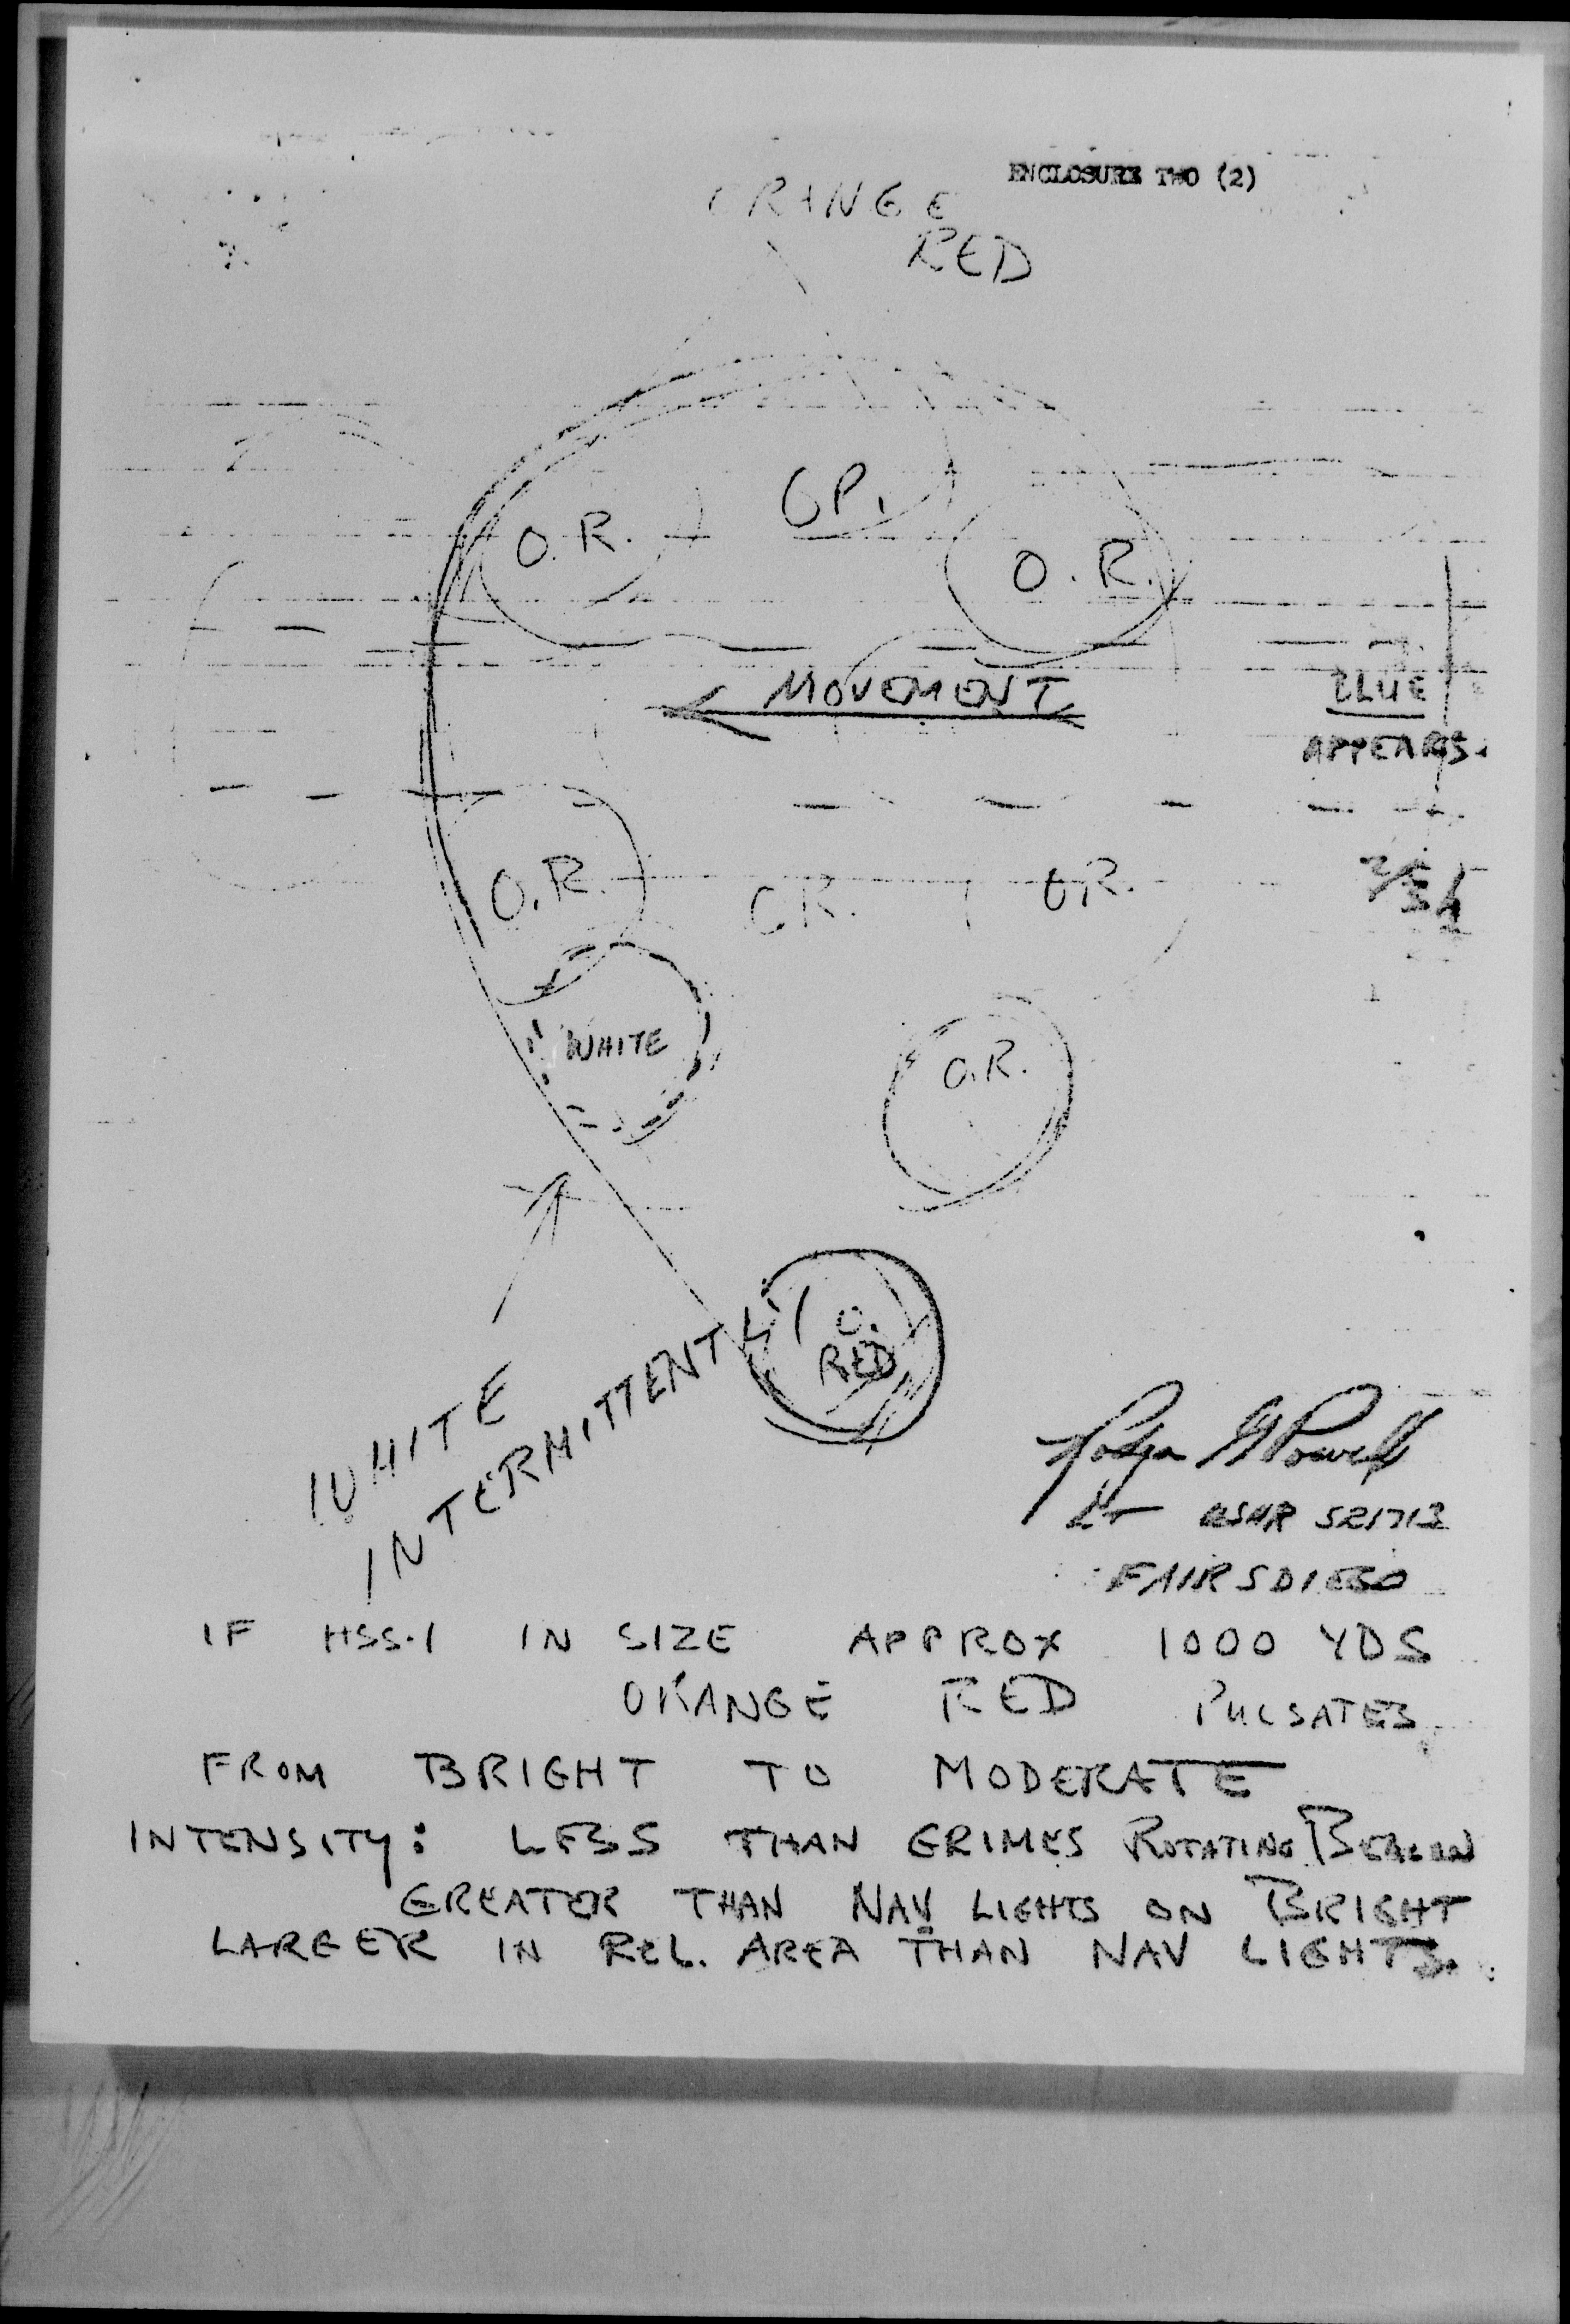 ENCLOSURE TWO (2)
ORANGE
RED
O.R.
O.R.
MOVEMENT
BLUE
APPEARS.
O.R.
O.R.
O.R.
WHITE
O.R.
O.
RED
WHITE
INTERMITTENTLY
FAIRSDIEGO
IF HSS-1 IN SIZE APPROX 1000 YDS
ORANGE RED PULSATES
FROM BRIGHT TO MODERATE
INTENSITY: LESS THAN GRIMES ROTATING BEACON
GREATER THAN NAV LIGHTS ON BRIGHT
LARGER IN REL. AREA THAN NAV LIGHTS.